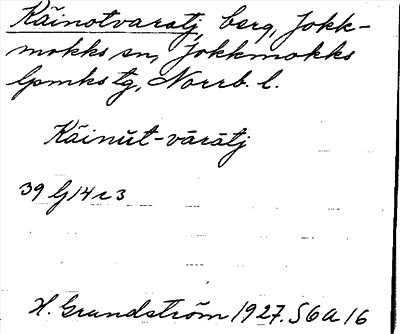 Käinotvaratj, berg, Jokk-
mokks sn, Jokkmokks
lpmks tg, Norrb. l.
Käinŭt-vārātj
39 lj 14 r 3
H. Grundström 1927. S6A16